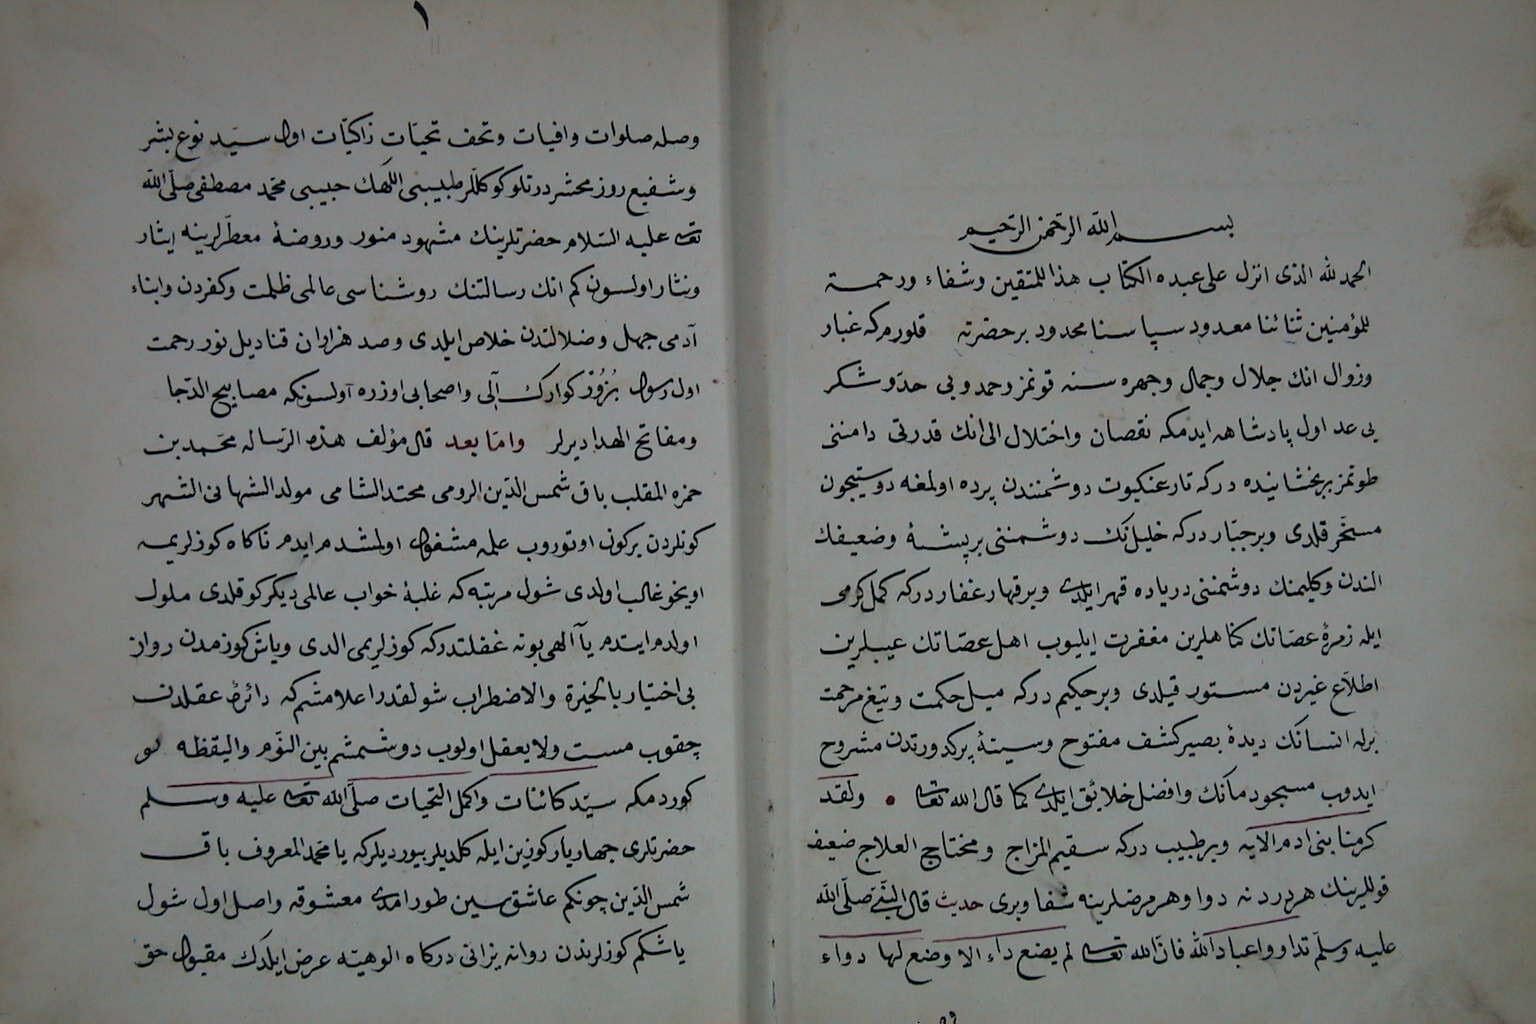 بسم الله الرحمن الرحيم
الحمد لله الذى انزل على عبده الكتاب هذا للمتقين وشفاء ورحمة
للمؤمنين ثنائنا معدود سپاسنا محدود برحضرته قلورم كه غبار
وزوال انك جلال وجمال وجهره سنه قونمز وحمد وبى حدّ وشكر
بى عد اول پادشاهه ايدمكه نقصان واختلال الى انك قدرتى دامننى
طوتمز بر بخشاينده دركه تار عنكبوت دوشمنندن پرده اولمغه دوستيچون
مسخّر قلدى وبرجبّار دركه خليلنك دوشمننى بر پشۀ وضعيفك
الندن وكليمنك دوشمننى درياده قهر ايلدى وبرقهار غفار دركه كمل كرمى
ايله زمرۀ عصاتك كناهلرين مغفرت ايليوب اهل عصاتك عيبلرين
اطلاع غيردن مستور قيلدى وبرحكيم دركه ميل حكمت وتيغ مرحمت
برله انسانك ديدۀ بصير كشف مفتوح وسينۀ پركدورتدن مشروح
ايدوب مسجود مآنك وافضل خلائق ايلدى كما قال الله تعالى ولقد
كرمنا بنى ادم الايه وبر طبيب دركه سقيم المزاج ومختاج العلاج ضعيف
قوللرينك هر درد نه دوا وهر مرضلرينه شفا ويرى حديث قال النّبى صلّى الله
عليه وسلّم تداووا عباد الله فانّ الله تعالى لم يضع داء الا وضع لها دواء
١
وصله صلوات وافيات وتحف تحيّات زاكيّات اول سيّد نوع بشر
وشفيع روز محشر درتلو كوكللر طبيبى اللهك حبيبى محمّد مصطفى صلّى الله
تعالى عليه السّلام حضرتلرينك مشهود منور وروضۀ معطّرلرينه ايثار
ونثار اولسون كم انك رسالتنك روشناسى عالمى ظلمت وكفردن وابناء
آدمى جهل وضلالتدن خلاص ايلدى وصد هزاران قناديل نور رحمت
اول رسول بزرگوارك آلى واصحابى اوزره آولسونكه مصابيح الدّجا
ومفاتح الهداديرلر وامّا بعد قال مؤلف هذه الرّساله محمّد بن
حمزه المقلب باق شمس الدّين الرومى محتد الشامى مولد الشهانى الشهر
كونلردن بركون اوتوروب علمه مشغول اولمشدم ايدم ناكاه كوزلريمه
اويخو غالب اولدى شول مرتبه كه غلبۀ خواب عالمى ديكركو قلدى ملول
اولدم ايتدم يا آلهى بونه غفلتدركه كوزلريمى الدى وياش كوزمدن رواز
بى اختيار بالحيرة والاضطراب شولقدر اعلامشم كه دائرۀ عقلدن
چقوب مست ولا يعقل اولوب دوشمشم بين النّوم واليقظه
كوردمكه سيّد كائنات واكمل التحيات صلّى الله تعالى عليه وسلم
حضرتلرى چهار ياركوزين ايله كلديلر بيورديلركه يا محمّد المعروف باق
شمس الدّين چونكم عاشق سين طور امدى معشوقه واصل اول شول
ياشكم كوزلرندن روانه يزانى دركاه الوهيّته عرض ايلدك مقبول حق